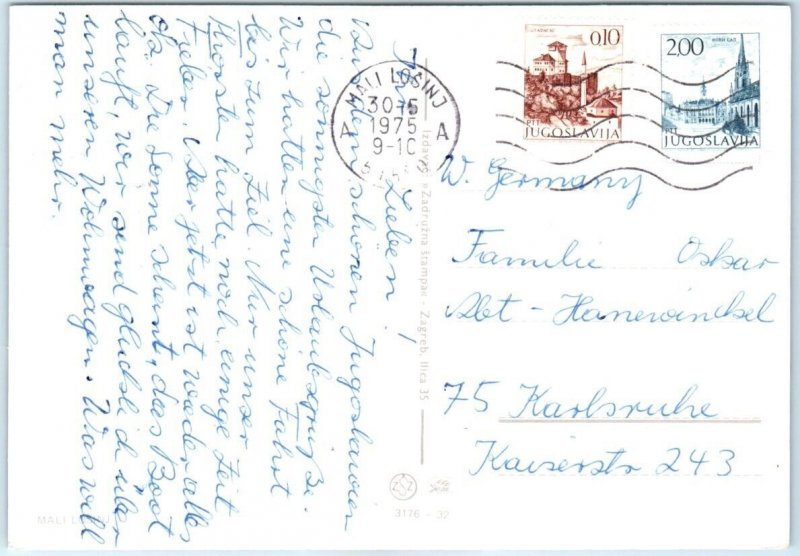 Ihr Lieben!
Aus dem schönen Jugoslawien
die sonnigsten Urlaubsgrüße.
Wir hatten eine schöne Fahrt
bis zum Ziel. Nur unser
Thorsten hatte noch einige Zeit
Fieber. Aber jetzt ist wieder alles
o.k. Die Sonne scheint, das Boot
läuft, wir sind glücklich über
unseren Wohnwagen. Was will
man mehr.
MALI LOŠINJ
Izdavač: »Zadružna štampa« - Zagreb, Ilica 35
3176 - 32
MALI LOŠINJ
30-5
1975
9-10
A A
0.10
ptt
JUGOSLAVIJA
2,00
NOVI SAD
ptt
JUGOSLAVIJA
W. Germany
Familie Oskar
Abt - Hanewinckel
75 Karlsruhe
Kaiserstr 243